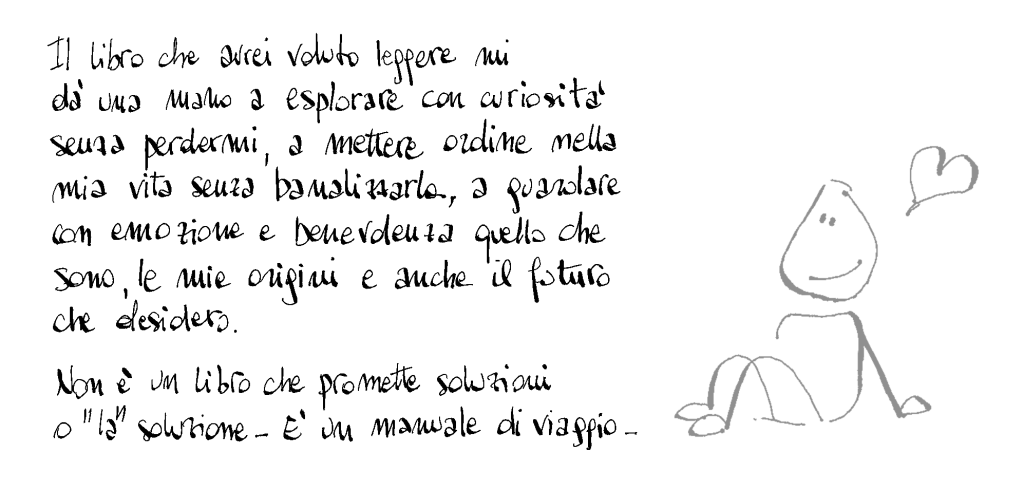 Il libro che avrei voluto leggere mi
dà una mano a esplorare con curiosità
senza perdermi, a mettere ordine nella
mia vita senza banalizzarla, a guardare
con emozione e benevolenza quello che
sono, le mie origini e anche il futuro
che desidero.
Non è un libro che promette soluzioni
o "la" soluzione - E' un manuale di viaggio -